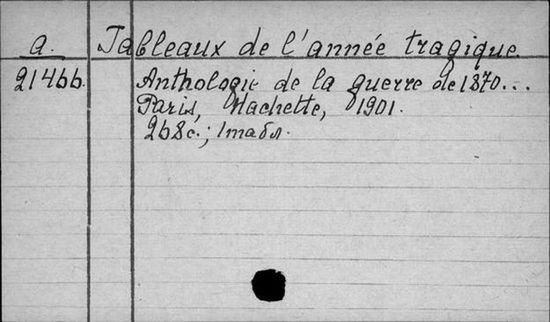 a. Tableaux de l'année tragique
21466. Anthologie de la guerre de 1870...
Paris, Hachette, 1901.
268с.; 1табл.